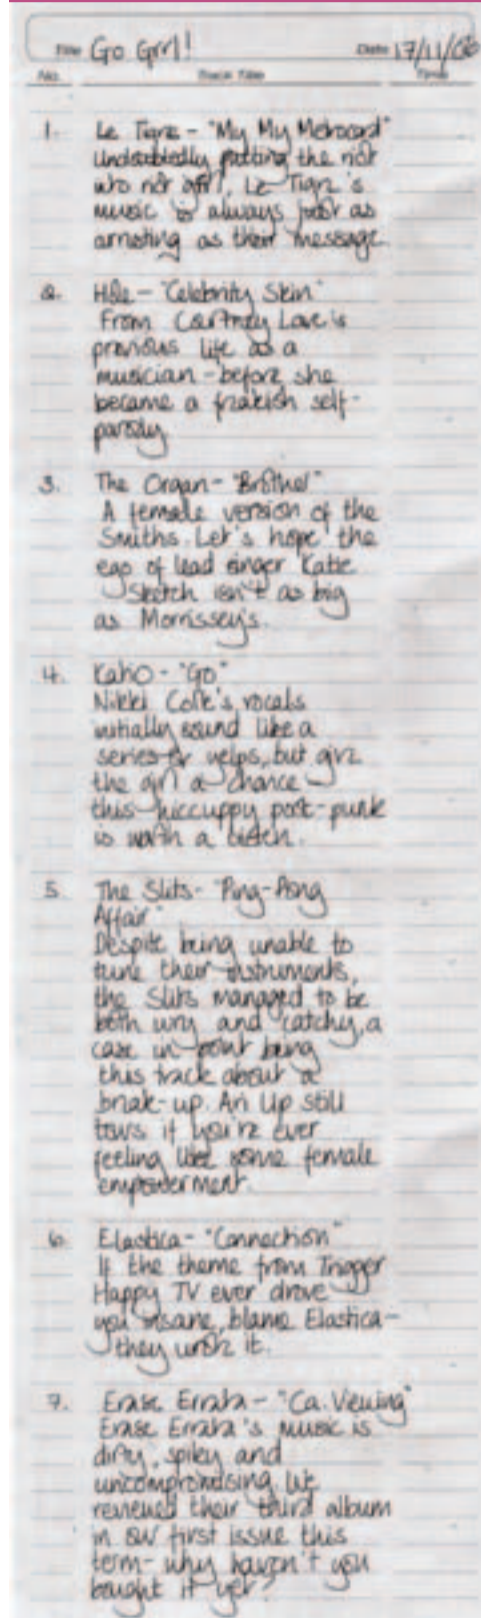 Title Go Grrl! Date 17/11/06
No. Track Title Time
1. Le Tigre - "My My Metrocard"
Undoubtedly putting the riot
into riot grrl, Le Tigre's
music is always just as
arresting as their message.
2. Hole - "Celebrity Skin"
From Courtney Love's
previous life as a
musician - before she
became a freakish self-
parody.
3. The Organ - "Brother"
A female version of the
Smiths. Let's hope the
ego of lead singer Katie
Sketch isn't as big
as Morrissey's.
4. Kaito - "Go"
Nikki Colk's vocals
initially sound like a
series of yelps, but give
the girl a chance
this hiccuppy post-punk
is worth a listen.
5. The Slits - "Ping-Pong
Affair"
Despite being unable to
tune their instruments,
the Slits managed to be
both wry and catchy, a
case in point being
this track about a
break-up. Ari Up still
tours if you're ever
feeling like some female
empowerment.
6. Elastica - "Connection"
If the theme from Trigger
Happy TV ever drove
you insane, blame Elastica -
they wrote it.
7. Erase Errata - "Ca. Viewing"
Erase Errata's music is
dirty, spiky and
uncompromising. We
reviewed their third album
in our first issue this
term - why haven't you
bought it yet?